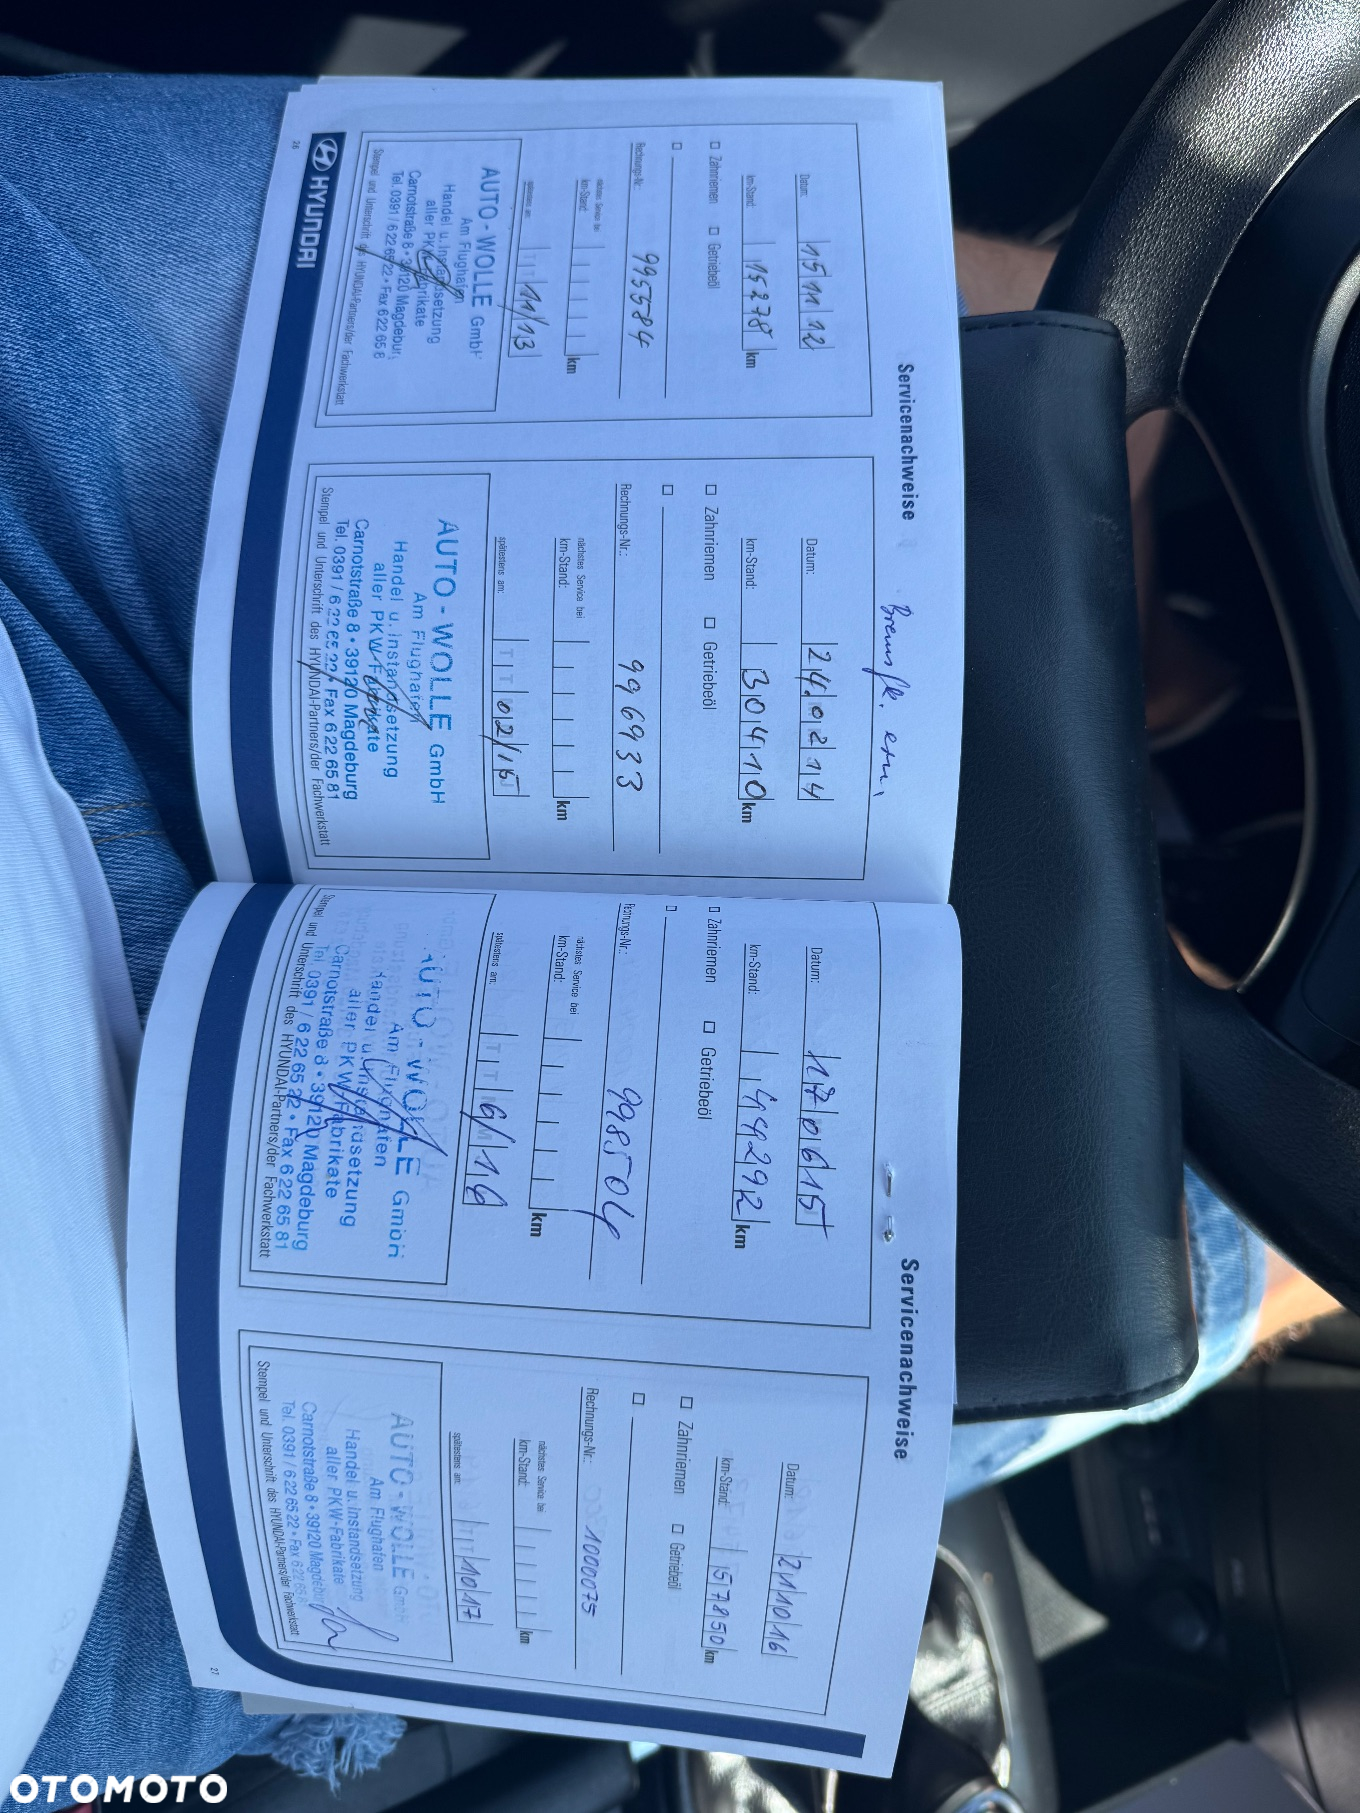 Servicenachweise
Datum: 15 11 12
km-Stand: 15278 km
☐ Zahnriemen ☐ Getriebeöl
☐
Rechnungs-Nr.: 995584
nächstes Service bei
km-Stand: km
spätestens am: TT 11/13
AUTO - WOLLE GmbH
Am Flughafen
Handel u. Instandsetzung
aller PKW-Fabrikate
Carnotstraße 8 • 39120 Magdebur
Tel. 0391 / 6 22 65 22 • Fax 6 22 65 8
Stempel und Unterschrift des HYUNDAI-Partners/der Fachwerkstatt
HYUNDAI
26
Bremsfl. ern.
Datum: 24 02 14
km-Stand: 30410 km
☐ Zahnriemen ☐ Getriebeöl
☐
Rechnungs-Nr.: 996933
nächstes Service bei
km-Stand: km
spätestens am: TT 02/15
AUTO - WOLLE GmbH
Am Flughafen
Handel u. Instandsetzung
aller PKW-Fabrikate
Carnotstraße 8 • 39120 Magdeburg
Tel. 0391 / 6 22 65 22 • Fax 6 22 65 81
Stempel und Unterschrift des HYUNDAI-Partners/der Fachwerkstatt
Servicenachweise
Datum: 17 06 15
km-Stand: 44292 km
☐ Zahnriemen ☐ Getriebeöl
☐
Rechnungs-Nr.: 998504
nächstes Service bei
km-Stand: km
spätestens am: TT 6/16
AUTO - WOLLE GmbH
Am Flughafen
Handel u. Instandsetzung
aller PKW-Fabrikate
Carnotstraße 8 • 39120 Magdeburg
Tel. 0391 / 6 22 65 22 • Fax 6 22 65 81
Stempel und Unterschrift des HYUNDAI-Partners/der Fachwerkstatt
Datum: 21 10 16
km-Stand: 57850 km
☐ Zahnriemen ☐ Getriebeöl
☐
Rechnungs-Nr.: 1000075
nächstes Service bei
km-Stand: km
spätestens am: TT 10 17
AUTO - WOLLE GmbH
Am Flughafen
Handel u. Instandsetzung
aller PKW-Fabrikate
Carnotstraße 8 • 39120 Magdeburg
Tel. 0391 / 6 22 65 22 • Fax 6 22 65 8
Stempel und Unterschrift des HYUNDAI-Partners/der Fachwerkstatt
27
OTOMOTO